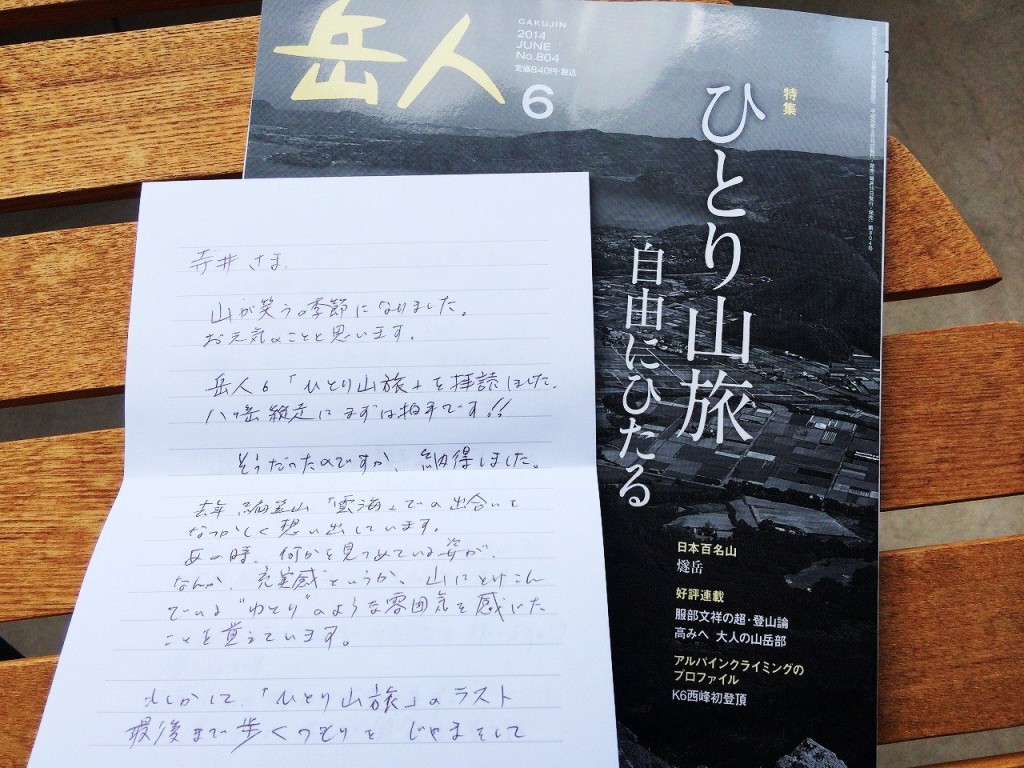 岳人
GAKUJIN
2014
JUNE
No.804
定価840円・税込
6
特集
ひとり山旅
自由にひたる
日本百名山
燧岳
好評連載
服部文祥の超・登山論
高みへ 大人の山岳部
アルパインクライミングの
プロファイル
K6西峰初登頂
寺井さま
山が笑う季節になりました。
お元気のことと思います。
岳人6「ひとり山旅」を拝読しました。
八ヶ岳縦走にまずは拍手です!!
そうだったのですか、納得しました。
去年 山「雲海」での出合いを
なつかしく想い出しています。
あの時、何かを見つめている姿が、
なんか、充実感というか、山にとけこん
でいる"ゆとり"のような雰囲気を感じた
ことを覚えています。
もしかして、「ひとり山旅」のラスト
最後まで歩くつもりを じゃまをして